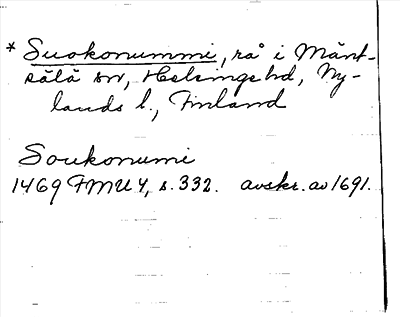 * Suokonummi, rå i Mänt-
sälä sn, Helsinge hd, Ny-
lands l., Finland
Soukonumi
1469 FMU 4, s. 332. avskr. av 1691.